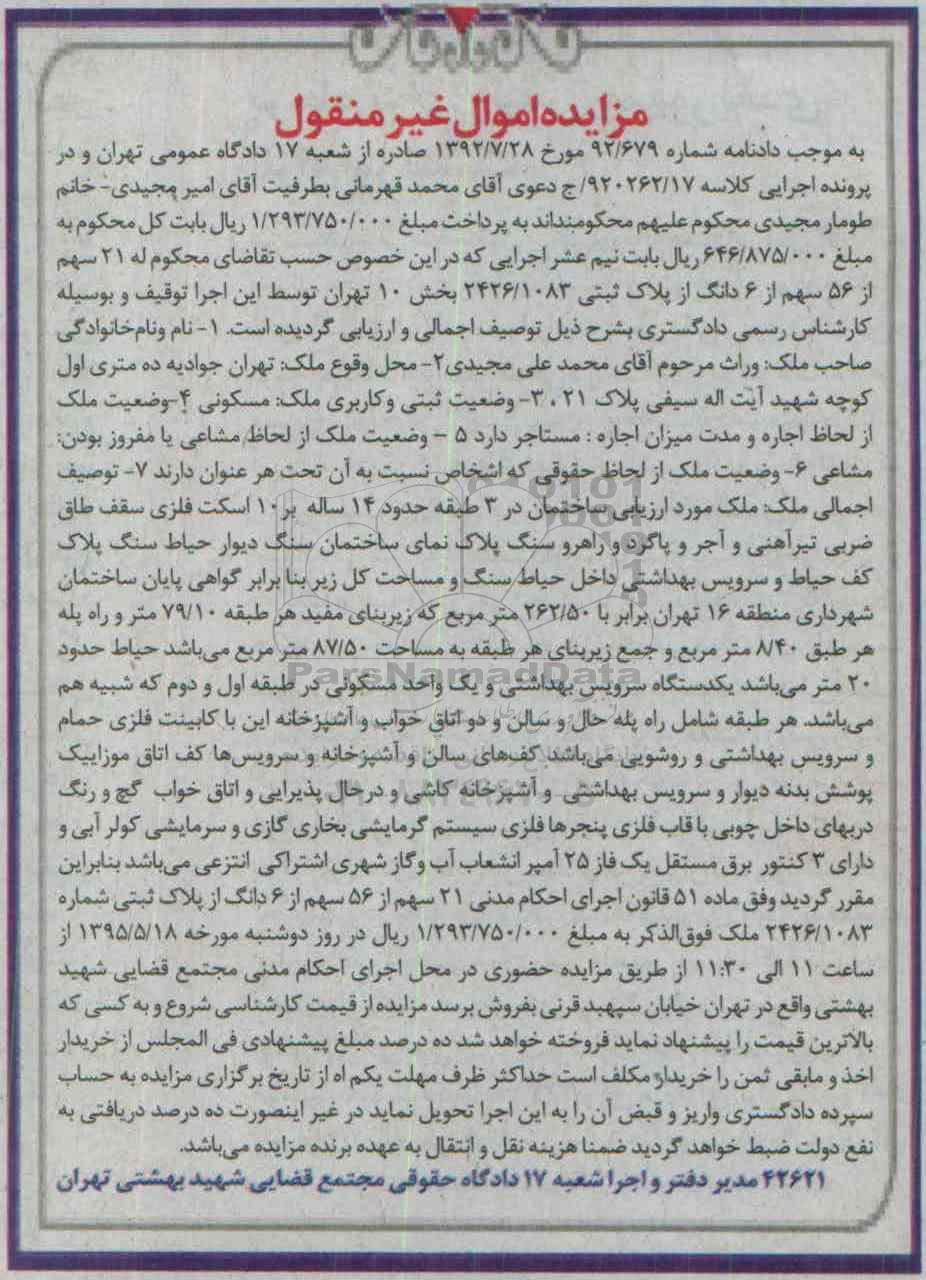 مزایده اموال غیر منقول
به موجب دادنامه شماره ۹۲/۶۷۹ مورخ ۱۳۹۲/۷/۲۸ صادره از شعبه ۱۷ دادگاه عمومی تهران و در
پرونده اجرایی کلاسه ۹۲۰۲۶۲/۱۷/ ج دعوی آقای محمد قهرمانی بطرفیت آقای امیر مجیدی- خانم
طومار مجیدی محکوم علیهم محکومنداند به پرداخت مبلغ ۱/۲۹۳/۷۵۰/۰۰۰ ریال بابت کل محکوم به
مبلغ ۶۴۶/۸۷۵/۰۰۰ ریال بابت نیم عشر اجرایی که در این خصوص حسب تقاضای محکوم له ۲۱ سهم
از ۵۶ سهم از ۶ دانگ از پلاک ثبتی ۲۴۲۶/۱۰۸۳ بخش ۱۰ تهران توسط این اجرا توقیف و بوسیله
کارشناس رسمی دادگستری بشرح ذیل توصیف اجمالی و ارزیابی گردیده است. ۱- نام ونام‌خانوادگی
صاحب ملک: وراث مرحوم آقای محمد علی مجیدی۲- محل وقوع ملک: تهران جوادیه ده متری اول
کوچه شهید آیت اله سیفی پلاک ۲۱ ، ۳- وضعیت ثبتی وکاربری ملک: مسکونی ۴-وضعیت ملک
از لحاظ اجاره و مدت میزان اجاره : مستاجر دارد ۵ – وضعیت ملک از لحاظ مشاعی یا مفروز بودن:
مشاعی ۶- وضعیت ملک از لحاظ حقوقی که اشخاص نسبت به آن تحت هر عنوان دارند ۷- توصیف
اجمالی ملک: ملک مورد ارزیابی ساختمان در ۳ طبقه حدود ۱۴ ساله بر۱۰ اسکت فلزی سقف طاق
ضربی تیرآهنی و آجر و پاگرد و راهرو سنگ پلاک نمای ساختمان سنگ دیوار حیاط سنگ پلاک
کف حیاط و سرویس بهداشتی داخل حیاط سنگ و مساحت کل زیر بنا برابر گواهی پایان ساختمان
شهرداری منطقه ۱۶ تهران برابر با ۲۶۲/۵۰ متر مربع که زیربنای مفید هر طبقه ۷۹/۱۰ متر و راه پله
هر طبق ۸/۴۰ متر مربع و جمع زیربنای هر طبقه به مساحت ۸۷/۵۰ متر مربع می‌باشد حیاط حدود
۲۰ متر می‌باشد یکدستگاه سرویس بهداشتی و یک واحد مسکونی در طبقه اول و دوم که شبیه هم
می‌باشد. هر طبقه شامل راه پله حال و سالن و دو اتاق خواب و آشپزخانه این با کابینت فلزی حمام
و سرویس بهداشتی و روشویی می‌باشد کف‌های سالن و آشپزخانه و سرویس‌ها کف اتاق موزاییک
پوشش بدنه دیوار و سرویس بهداشتی و آشپزخانه کاشی و درحال پذیرایی و اتاق خواب گچ و رنگ
دربهای داخل چوبی با قاب فلزی پنجرها فلزی سیستم گرمایشی بخاری گازی و سرمایشی کولر آبی و
دارای ۳ کنتور برق مستقل یک فاز ۲۵ آمپر انشعاب آب وگاز شهری اشتراکی انتزعی می‌باشد بنابراین
مقرر گردید وفق ماده ۵۱ قانون اجرای احکام مدنی ۲۱ سهم از ۵۶ سهم از ۶ دانگ از پلاک ثبتی شماره
۲۴۲۶/۱۰۸۳ ملک فوق‌الذکر به مبلغ ۱/۲۹۳/۷۵۰/۰۰۰ ریال در روز دوشنبه مورخه ۱۳۹۵/۵/۱۸ از
ساعت ۱۱ الی ۱۱:۳۰ از طریق مزایده حضوری در محل اجرای احکام مدنی مجتمع قضایی شهید
بهشتی واقع در تهران خیابان سپهبد قرنی بفروش برسد مزایده از قیمت کارشناسی شروع و به کسی که
بالاترین قیمت را پیشنهاد نماید فروخته خواهد شد ده درصد مبلغ پیشنهادی فی المجلس از خریدار
اخذ و مابقی ثمن را خریدار مکلف است حداکثر ظرف مهلت یکم اه از تاریخ برگزاری مزایده به حساب
سپرده دادگستری واریز و قبض آن را به این اجرا تحویل نماید در غیر اینصورت ده درصد دریافتی به
نفع دولت ضبط خواهد گردید ضمنا هزینه نقل و انتقال به عهده برنده مزایده می‌باشد.
۴۲۶۲۱ مدیر دفتر و اجرا شعبه ۱۷ دادگاه حقوقی مجتمع قضایی شهید بهشتی تهران
ParsNamadData